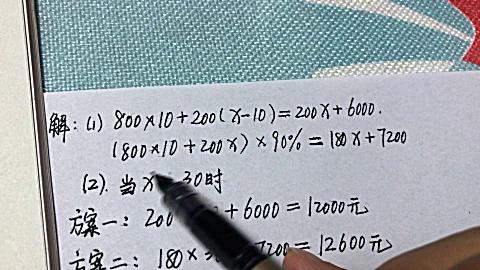 解：(1) 800×10+200(x-10)=200x+6000.
(800×10+200x)×90%=180x+7200
(2). 当x 30时
方案一：200 +6000=12000元
方案二：180×3 7200=12600元